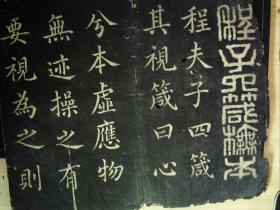 程子四箴橅本
程夫子四箴
其視箴曰心
兮本虛應物
無迹操之有
要視為之則